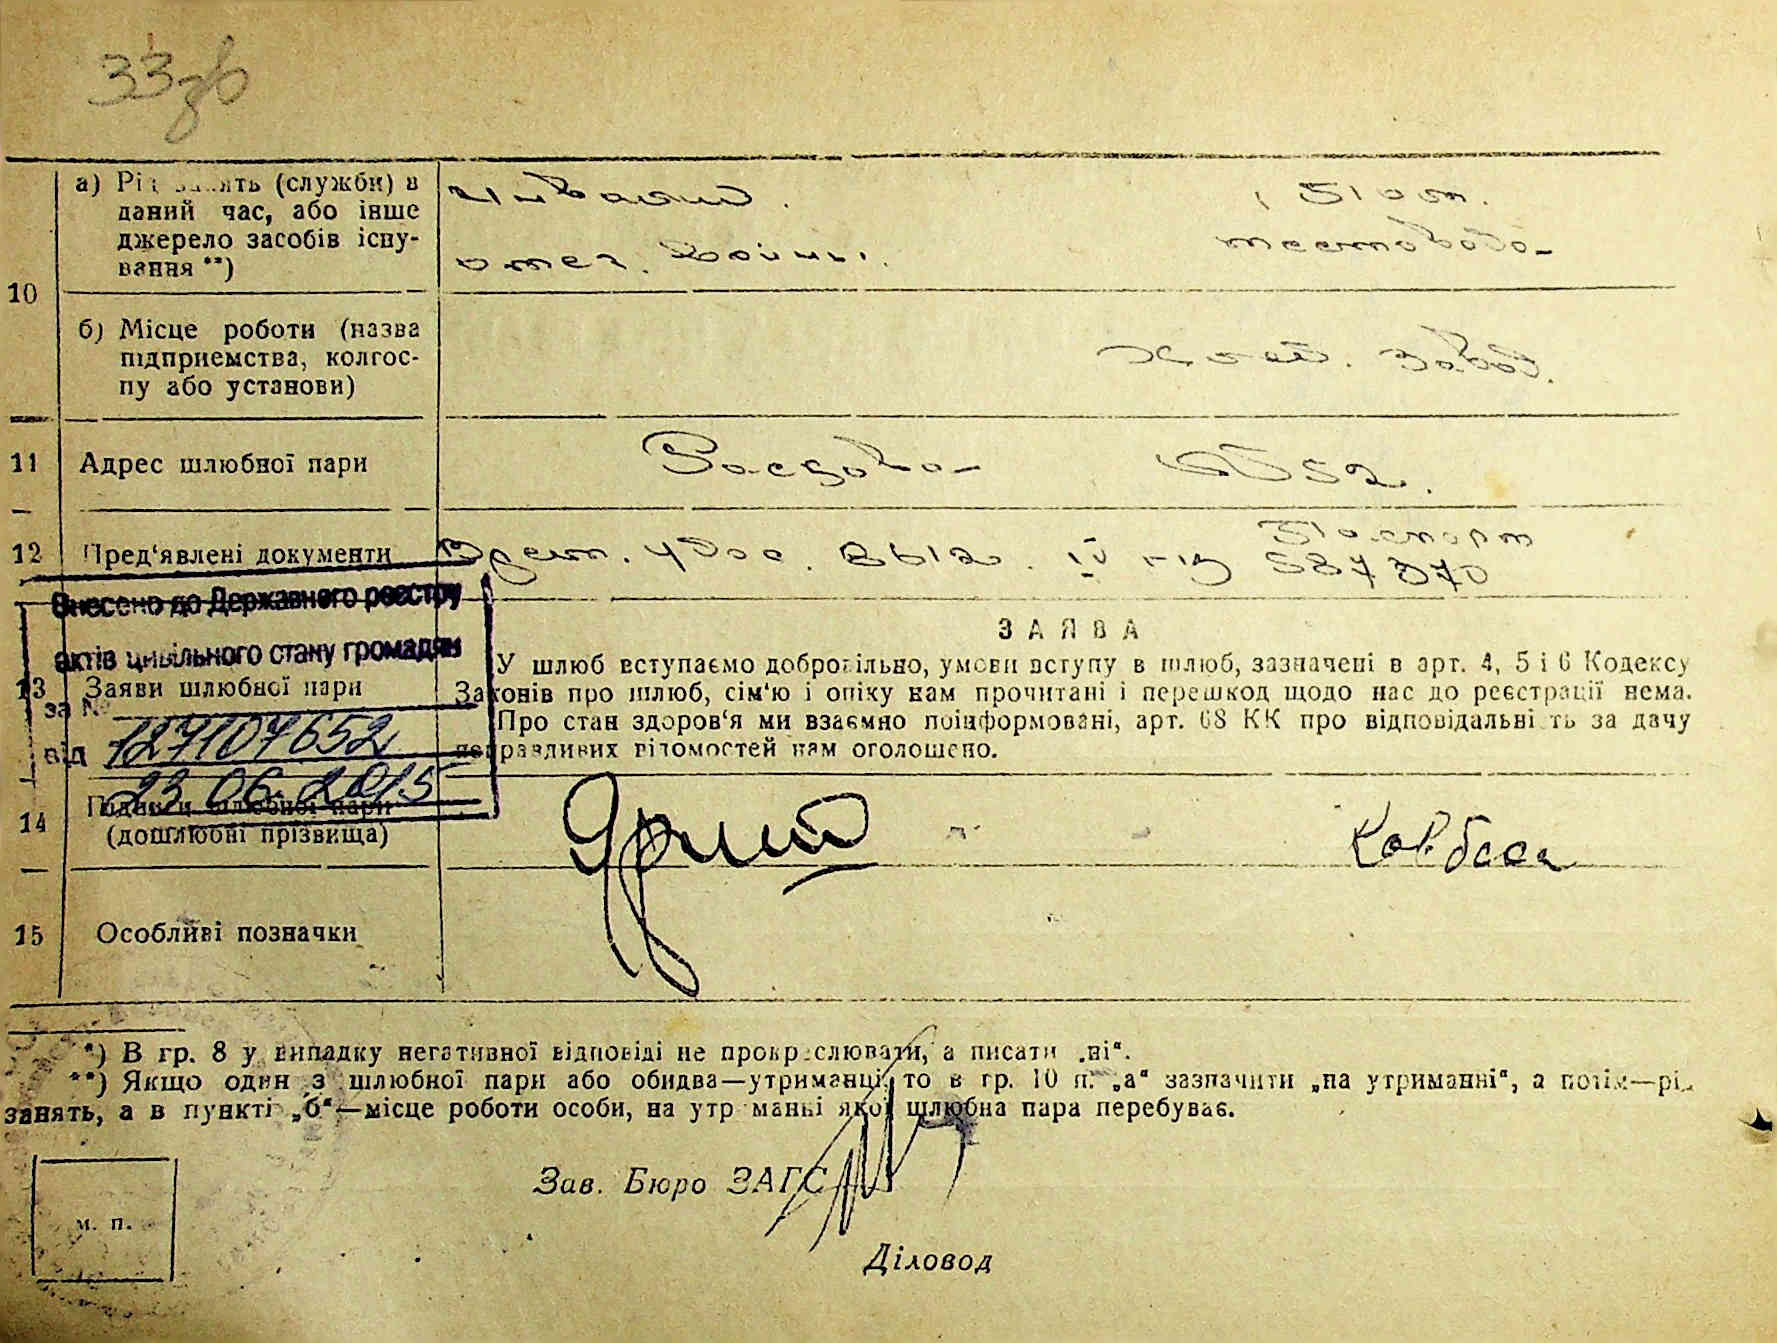 33зв
а) Рід занять (службн) в
даний час, або інше
джерело засобів існу-
вання **)
Инвалид.
отеч. войны.
10
б) Місце роботи (назва
підприемства, колгос-
пу або установи)
завод.
11 Адрес шлюбної пари
12 Пред'явлені документи
IV
Паспорт
587370
Внесено до Державного реєстру
актів цивільного стану громадян
за №
127107652
від
23 06. 2015
ЗАЯВА
13 Заяви шлюбної пари
У шлюб вступаємо добровільно, умови вступу в шлюб, зазначені в арт. 4, 5 і 6 Кодексу
Законів про шлюб, сім'ю і опіку нам прочитані і перешкод щодо нас до реєстрації нема.
Про стан здоров'я ми взаємно поінформовані, арт. 68 КК про відповідальність за дачу
неправдивих відомостей нам оголошено.
14 Підписи шлюбної пари
(дошлюбні прізвища)
Ковбаса
15 Особливі позначки
*) В гр. 8 у випадку негативної відповіді не прокреслювати, а писати „ні“.
**) Якщо один з шлюбної пари або обидва—утриманці, то в гр. 10 п. „а“ зазначити „на утриманні“, а потім—рід
занять, а в пункті „б“—місце роботи особи, на утриманні якої шлюбна пара перебуває.
Зав. Бюро ЗАГС
м. п.
Діловод